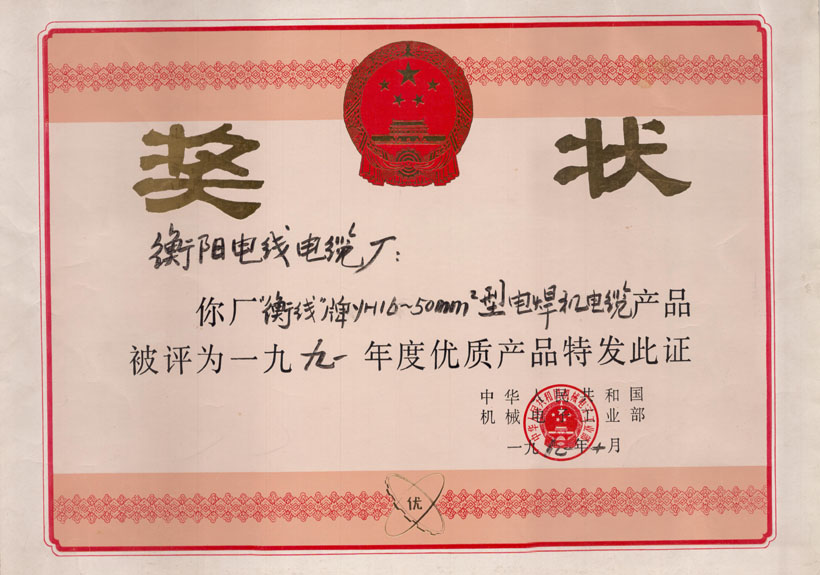 奖状
衡阳电线电缆厂:
你厂"衡线"牌YH16~50mm²型电焊机电缆产品
被评为一九九一年度优质产品特发此证
中华人民共和国
机械电子工业部
一九九一年十月
优